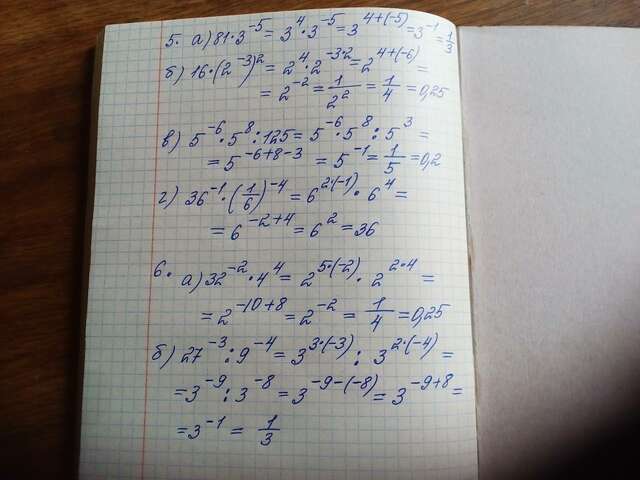 5. а) 81·3⁻⁵ = 3⁴·3⁻⁵ = 3⁴⁺⁽⁻⁵⁾ = 3⁻¹ = 1/3
б) 16·(2⁻³)² = 2⁴·2⁻³·² = 2⁴⁺⁽⁻⁶⁾ =
= 2⁻² = 1/2² = 1/4 = 0,25
в) 5⁻⁶·5⁸:125 = 5⁻⁶·5⁸:5³ =
= 5⁻⁶⁺⁸⁻³ = 5⁻¹ = 1/5 = 0,2
г) 36⁻¹·(1/6)⁻⁴ = 6²·⁽⁻¹⁾·6⁴ =
= 6⁻²⁺⁴ = 6² = 36
6. а) 32⁻²·4⁴ = 2⁵·⁽⁻²⁾·2²·⁴ =
= 2⁻¹⁰⁺⁸ = 2⁻² = 1/4 = 0,25
б) 27⁻³:9⁻⁴ = 3³·⁽⁻³⁾:3²·⁽⁻⁴⁾ =
= 3⁻⁹:3⁻⁸ = 3⁻⁹⁻⁽⁻⁸⁾ = 3⁻⁹⁺⁸ =
= 3⁻¹ = 1/3